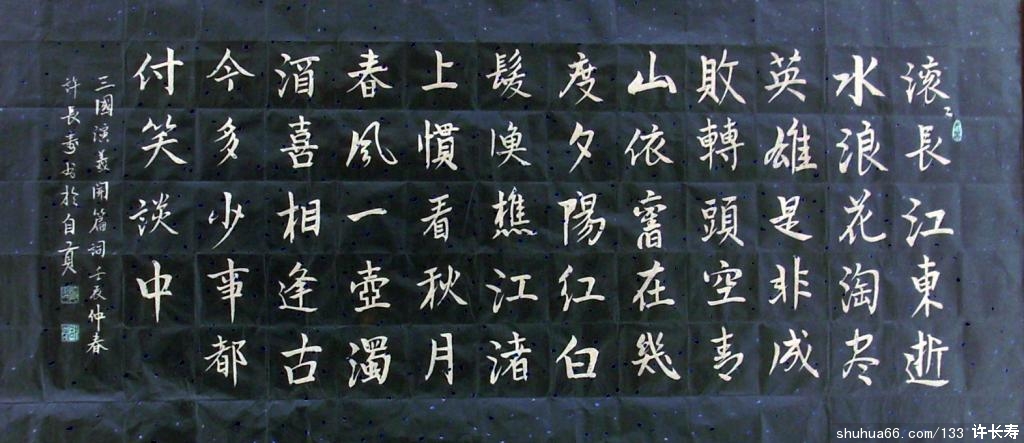 滚〻長江東逝
水浪花淘尽
英雄是非成
敗轉頭空青
山依舊在幾
度夕陽紅白
髮漁樵江渚
上慣看秋月
春風一壺濁
酒喜相逢古
今多少事都
付笑談中
三國演義開篇詞壬辰仲春
許長壽书於自貢
shuhua66.com/133 许长寿